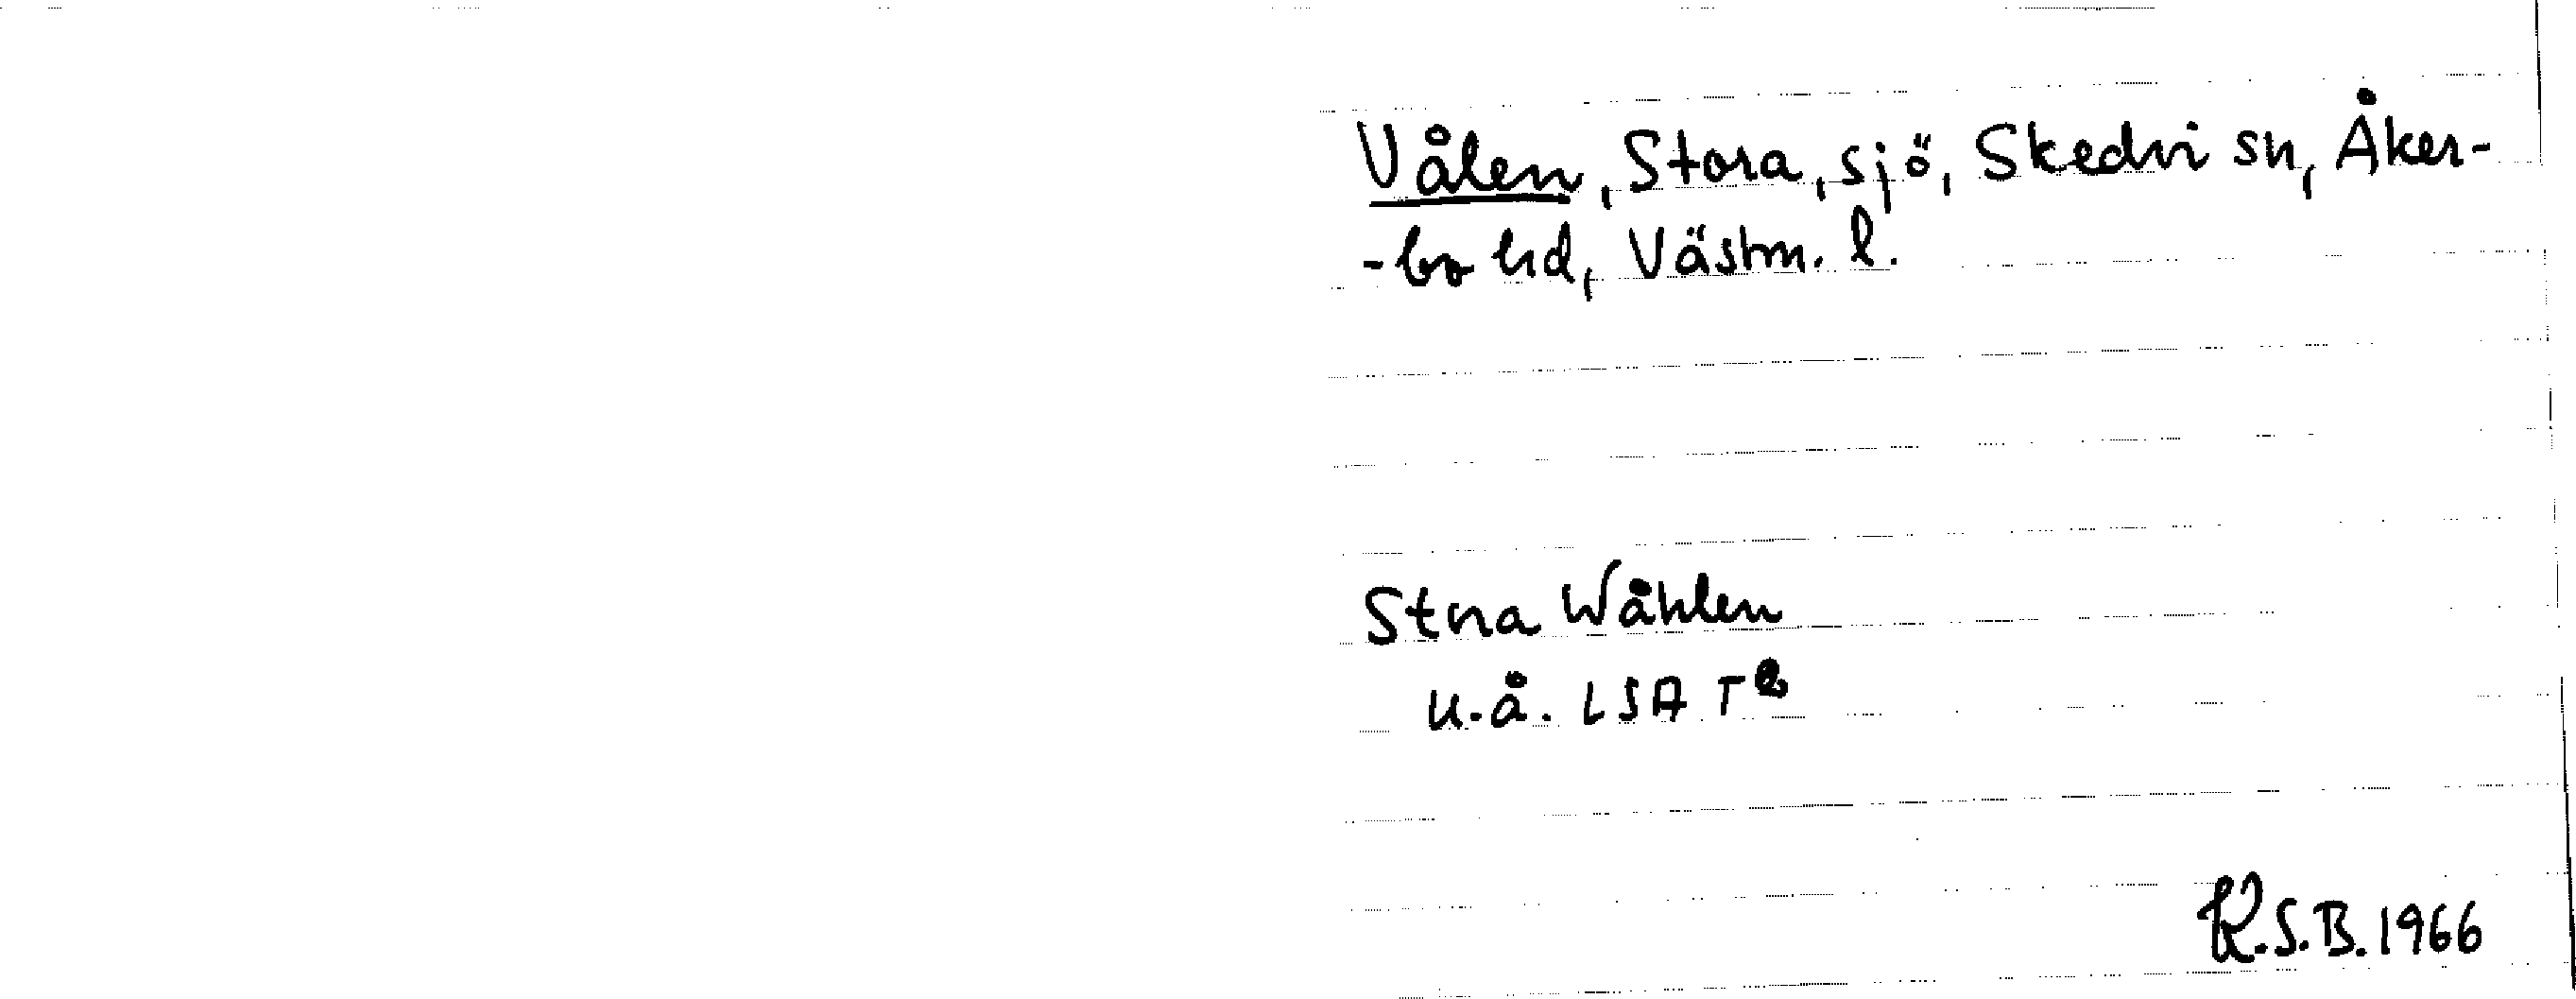 Vålen, Stora, sjö, Skedvi sn, Åker-
-bo hd, Västm. l.
Stora Wåhlen
u.å. LSA T
K.S.B. 1966